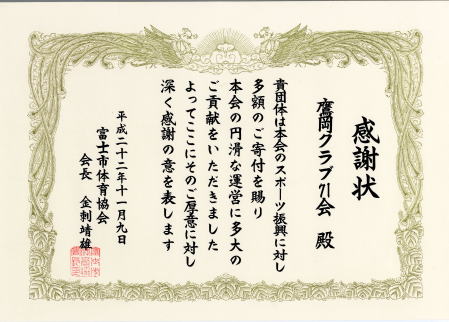 感謝状
鷹岡クラブ71会 殿
貴団体は本会のスポーツ振興に対し
多額のご寄付を賜り
本会の円滑な運営に多大の
ご貢献をいただきました
よってここにそのご厚意に対し
深く感謝の意を表します
平成二十二年十一月九日
富士市体育協会
会長 金刺靖雄